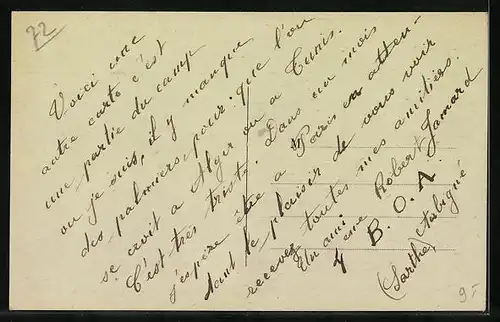 72
Voici une
autre carte c'est
une partie du camp
ou je suis, il y manque
des palmiers, pour que l'on
se croit a Alger ou a Tunis.
C'est très triste. Dans un mois
j'espère être a Paris en atten-
dant le plaisir de vous voir
recevez toutes mes amitiés.
Un ami: Robert Lamard
4eme B.O.A.
(Sarthe) Aubigné
9-